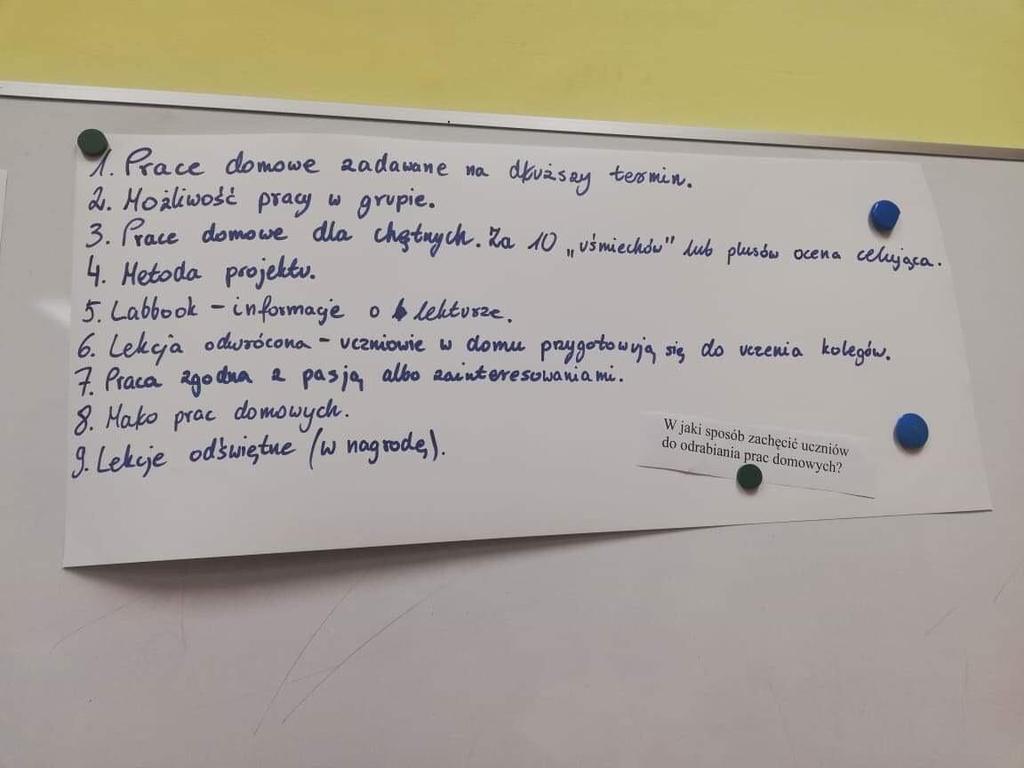 1. Prace domowe zadawane na dłuższy termin.
2. Możliwość pracy w grupie.
3. Prace domowe dla chętnych. Za 10 „uśmiechów" lub plusów ocena celująca.
4. Metoda projektu.
5. Labbook - informacje o lekturze.
6. Lekcja odwrócona - uczniowie w domu przygotowują się do uczenia kolegów.
7. Praca zgodna z pasją albo zainteresowaniami.
8. Mało prac domowych.
9. Lekcje odświętne (w nagrodę).
W jaki sposób zachęcić uczniów
do odrabiania prac domowych?